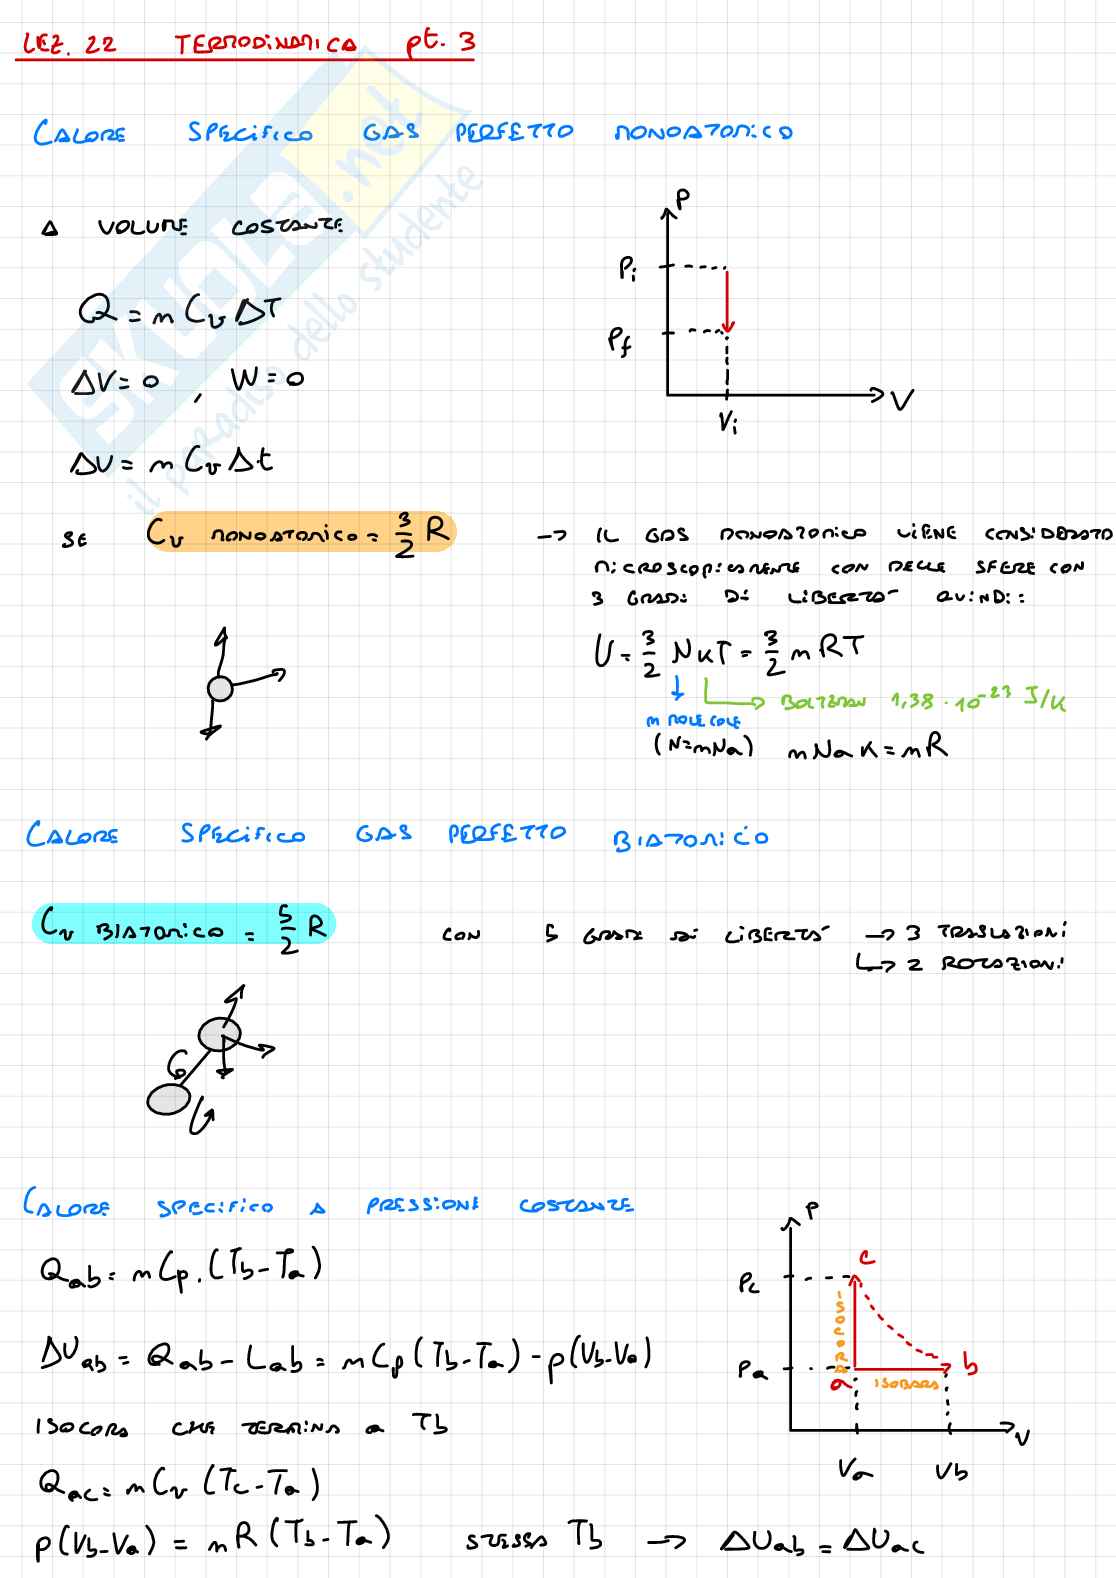 LEZ. 22 TERMODINAMICA pt. 3
CALORE SPECIFICO GAS PERFETTO MONOATOMICO
A VOLUME COSTANTE
Q = n Cv ΔT
ΔV = 0 , W = 0
ΔU = n Cv Δt
P
Pi
Pf
Vi
V
SE Cv MONOATOMICO = 3/2 R
→ IL GAS MONOATOMICO VIENE CONSIDERATO
MICROSCOPICAMENTE CON DELLE SFERE CON
3 GRADI DI LIBERTA' QUINDI:
U = 3/2 NKT = 3/2 nRT
BOLTZMAN 1,38 · 10^-23 J/K
n MOLECOLE
(N = nNa) nNa K = nR
CALORE SPECIFICO GAS PERFETTO BIATOMICO
Cv BIATOMICO = 5/2 R
CON 5 GRADI DI LIBERTA' → 3 TRASLAZIONI
↳ 2 ROTAZIONI
CALORE SPECIFICO A PRESSIONE COSTANTE
Qab = n Cp · (Tb - Ta)
ΔUab = Qab - Lab = n Cp (Tb - Ta) - p(Vb - Va)
ISOCORA CHE TERMINA a Tb
Qac = n Cv (Tc - Ta)
p(Vb - Va) = nR (Tb - Ta) STESSA Tb → ΔUab = ΔUac
P
Pc
c
ISOCORA
Pa
a
ISOBARA
b
Va
Vb
V
SKUOLA.net
il paradiso dello studente